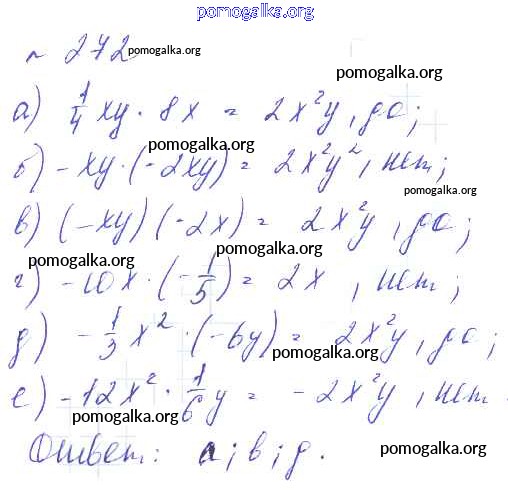 pomogalka.org
№ 272 pomogalka.org
pomogalka.org
а) 1/4 xy · 8x = 2x²y, да;
pomogalka.org
б) -xy · (-2xy) = 2x²y², нет;
pomogalka.org
в) (-xy)(-2x) = 2x²y, да;
pomogalka.org pomogalka.org
г) -10x · (-1/5) = 2x, нет;
д) -1/3 x² · (-6y) = 2x²y, да;
pomogalka.org
е) -12x² · 1/6 y = -2x²y, нет.
pomogalka.org
Ответ: а; в; д.
pomogalka.org